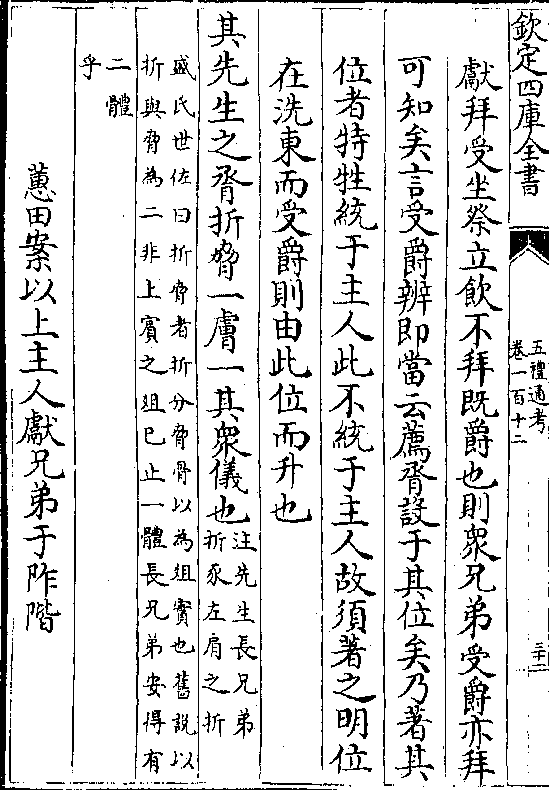 欽定四庫全書
五禮通考
卷一百十二
三十二
獻拜受坐祭立飲不拜既爵也則衆兄弟受爵亦拜
可知矣言受爵辨即當云薦脀設于其位矣乃著其
位者特牲統于主人此不統于主人故須著之明位
在洗東而受爵則由此位而升也
其先生之脀折脅一膚一其衆儀也
注先生長兄弟
折豕左肩之折
盛氏世佐曰折脅者折分脅骨以為俎實也舊説以
折與脅為二非上賓之俎已止一體長兄弟安得有
二體
乎
蕙田案以上主人獻兄弟于阼階